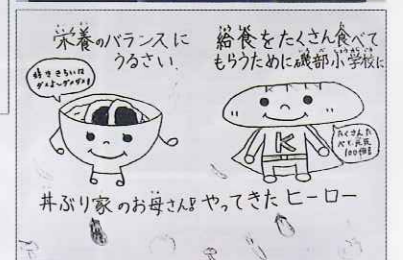 栄養のバランスに
うるさい
好ききらいは
ダメよ〜ダメダメ!
丼ぶり家のお母さん!
給食をたくさん食べて
もらうために磯部小学校に
K
たくさんた
べて元気
100倍!
やってきたヒーロー